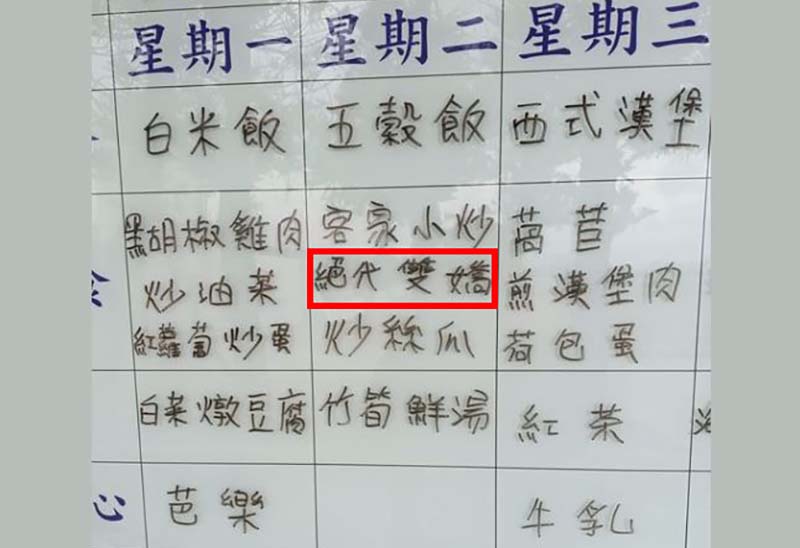 星期一 星期二 星期三
白米飯 五穀飯 西式漢堡
黑胡椒雞肉 客家小炒 萵苣
炒油菜 絕代雙嬌 煎漢堡肉
紅蘿蔔炒蛋 炒絲瓜 荷包蛋
白菜燉豆腐 竹筍鮮湯 紅茶
心 芭樂 牛乳